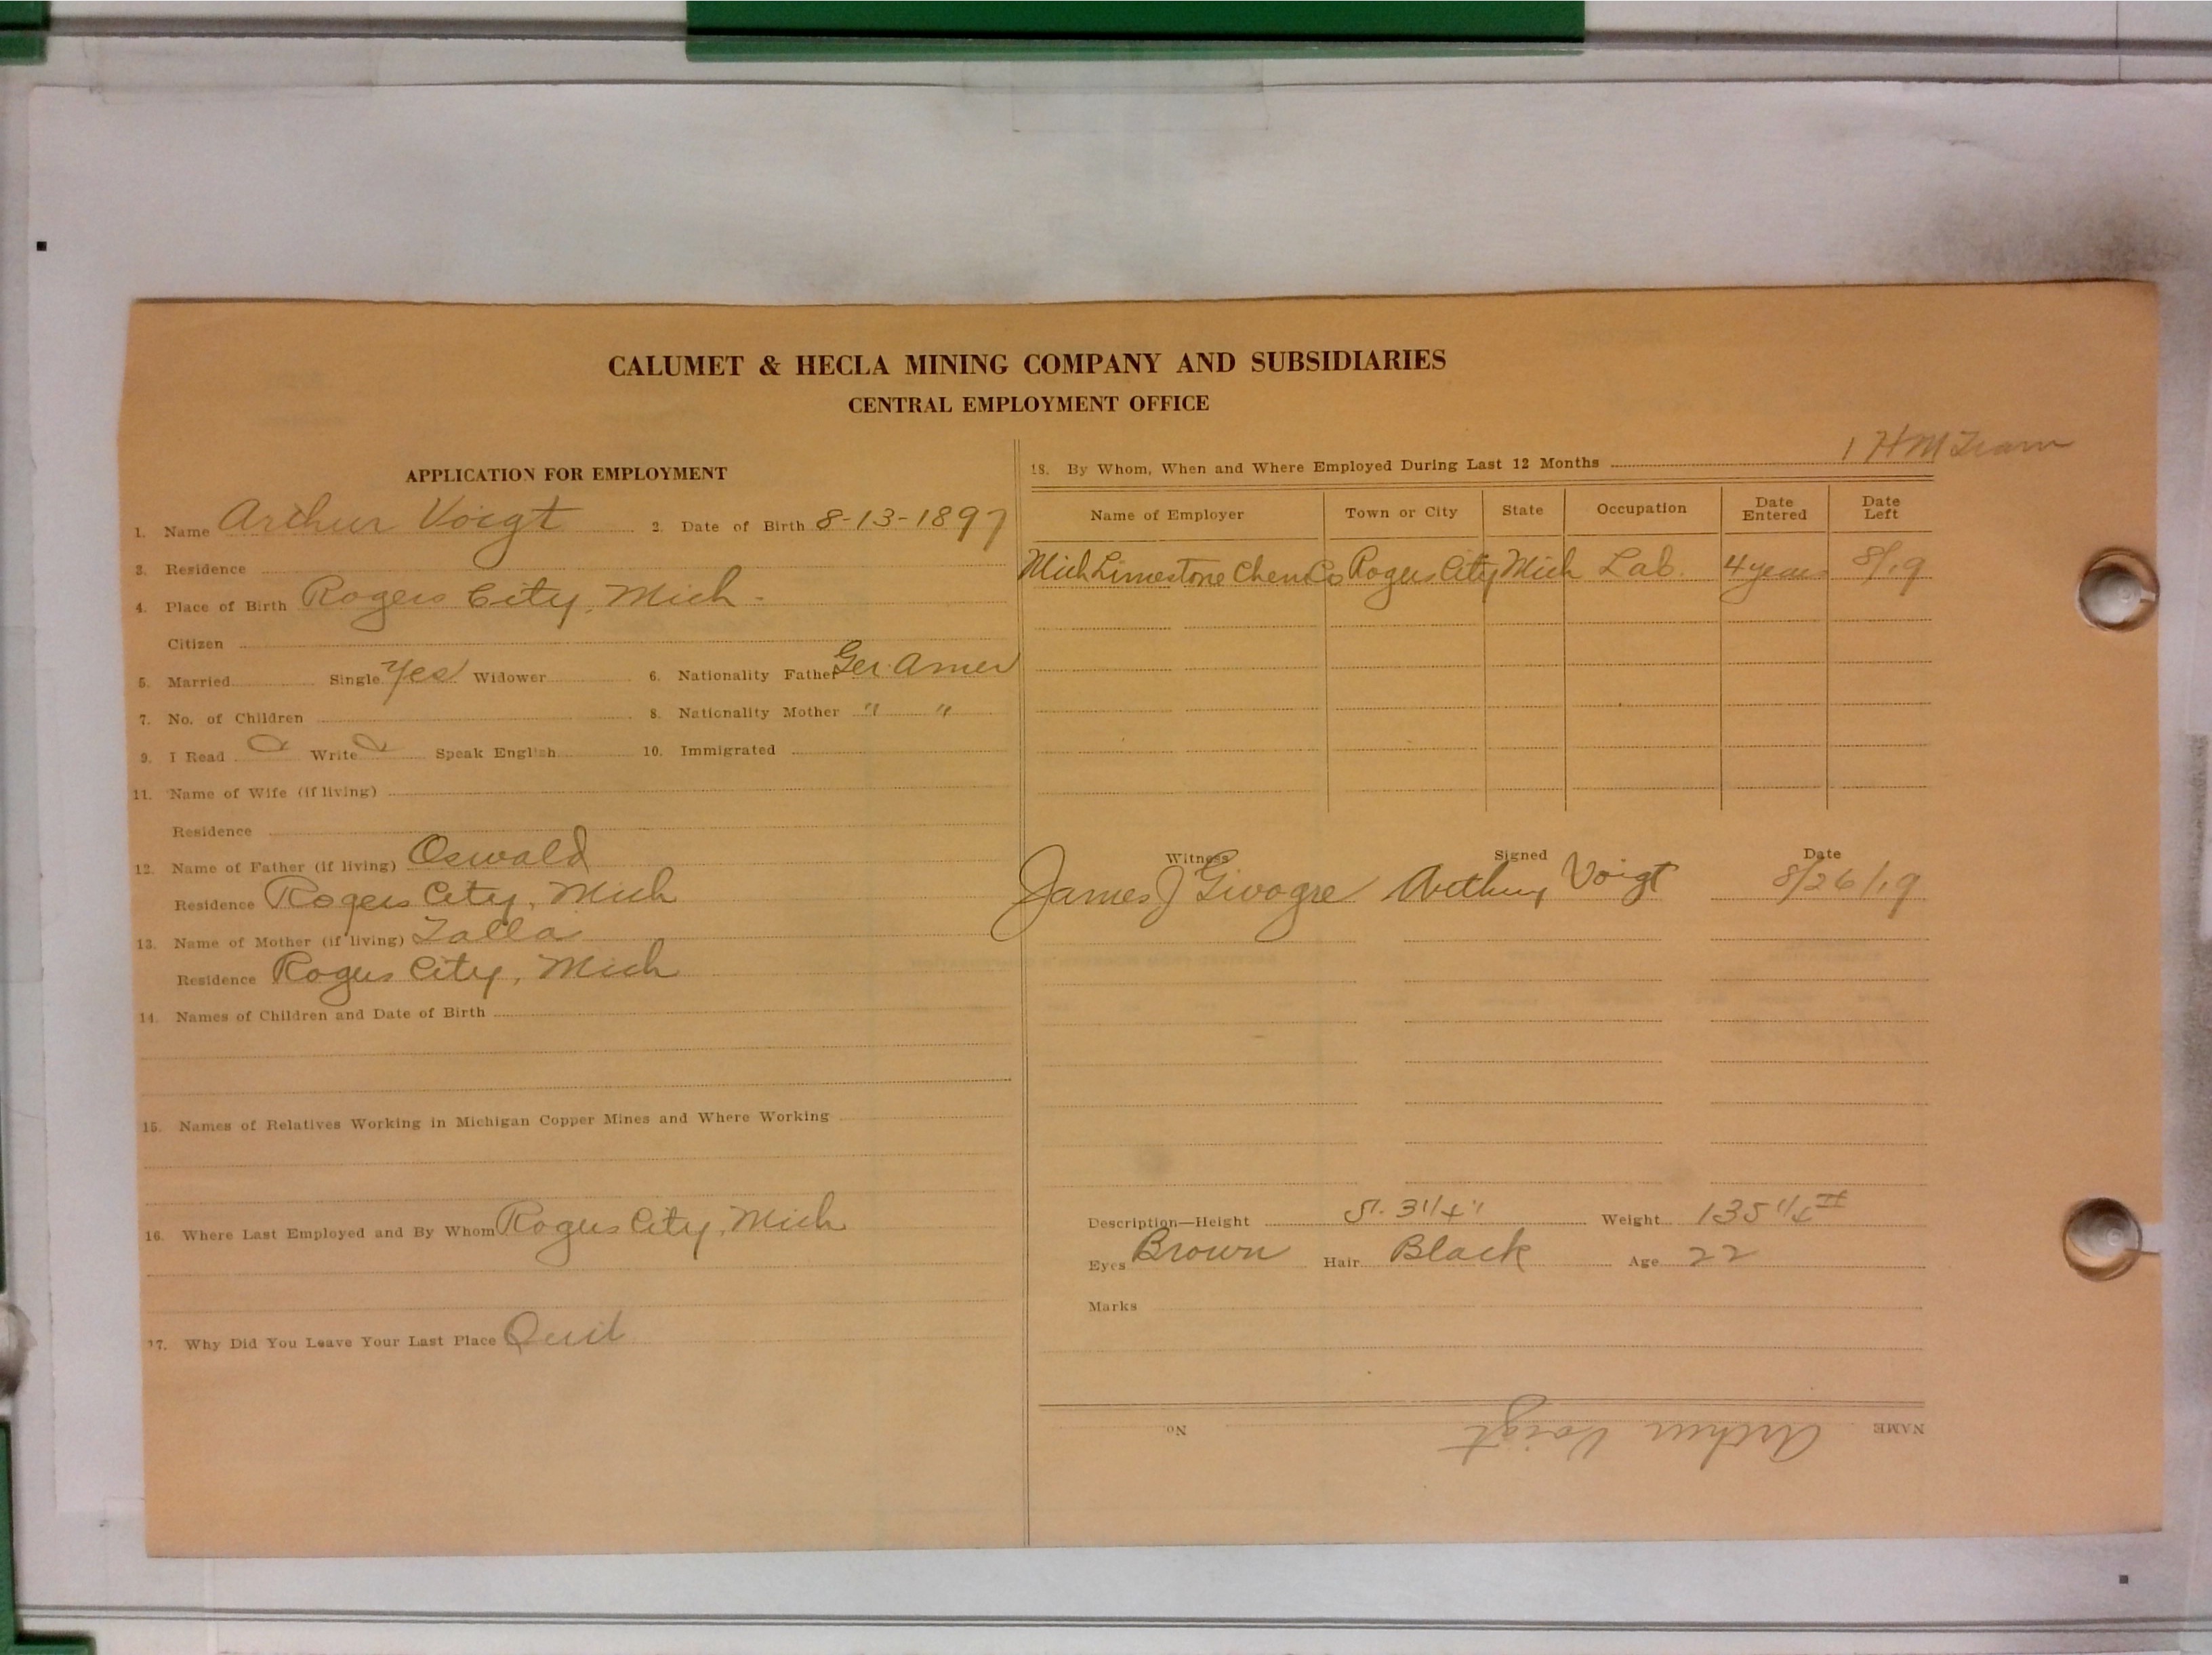 CALUMET & HECLA MINING COMPANY AND SUBSIDIARIES
CENTRAL EMPLOYMENT OFFICE
APPLICATION FOR EMPLOYMENT
1. Name Arthur Voigt 2. Date of Birth 8-13-1897
3. Residence
4. Place of Birth Rogers City, Mich -
Citizen
5. Married Single Yes Widower 6. Nationality Father Ger. Amer
7. No. of Children 8. Nationality Mother " "
9. I Read Write Speak English 10. Immigrated
11. Name of Wife (if living)
Residence
12. Name of Father (if living) Oswald
Residence Rogers City, Mich
13. Name of Mother (if living)
Residence Rogers City, Mich
14. Names of Children and Date of Birth
15. Names of Relatives Working in Michigan Copper Mines and Where Working
16. Where Last Employed and By Whom Rogers City, Mich
17. Why Did You Leave Your Last Place Quit
1 HM Tram
18. By Whom, When and Where Employed During Last 12 Months
Name of Employer Town or City State Occupation Date Entered Date Left
Mich Limestone Chem Co Rogers City Mich Lab. 4 years 8/19
Witness Signed Date
James J Arthur Voigt 8/26/19
Description—Height 5'. 3 1/4" Weight 135 1/4 #
Eyes Brown Hair Black Age 22
Marks
NAME Arthur Voigt No.